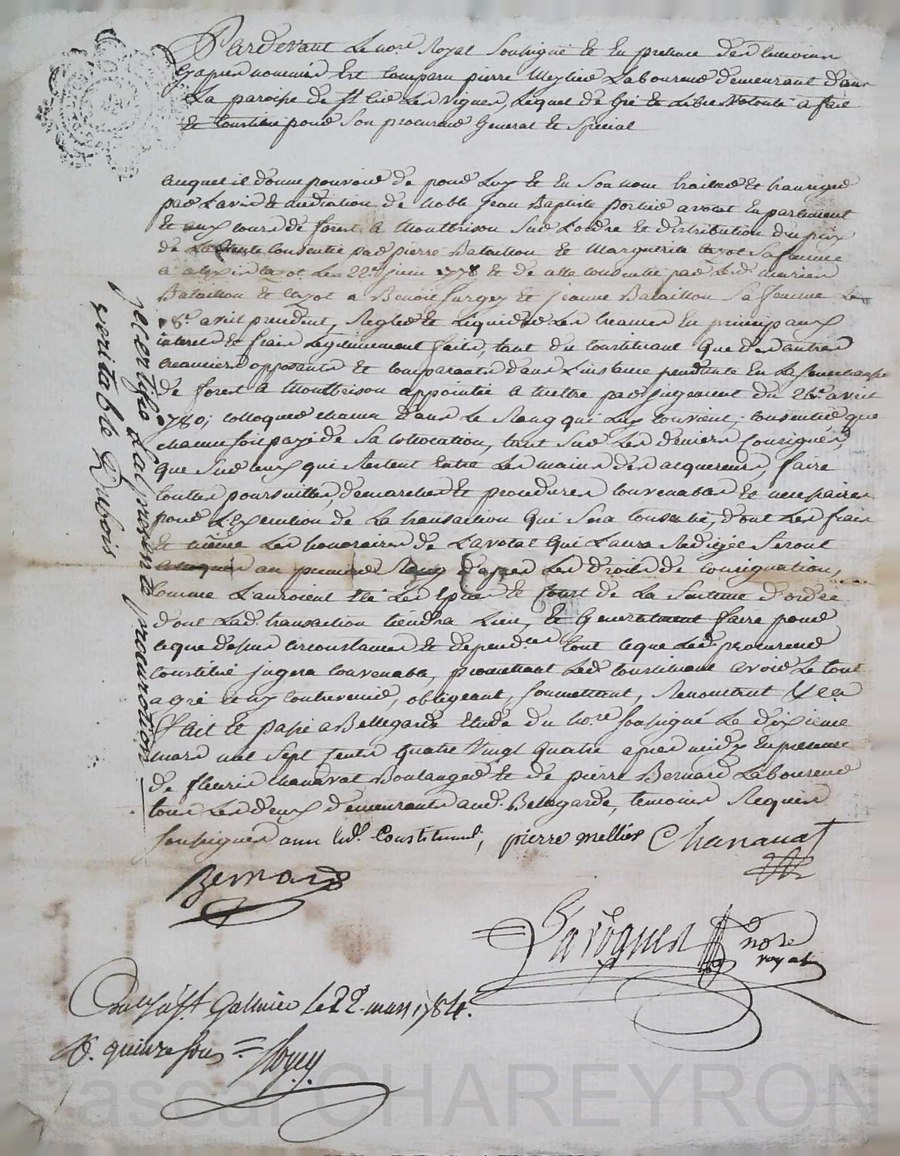 Pardevant Le nore Royal Soussigné & En presence des temoins
Cy apres nommés Est Comparu pierre Meylier Laboureur demeurant dans
La paroisse de st Cir Les vignes Lequel de Gré & Libre volonté a fait
& Constitué pour Son procureur General & Special
auquel il donne pouvoir de pour Luy & En Son nom traiter & transiger
par L'avis & mediation de Noble Jean Baptiste Portier avocat En parlement
& aux cours de forest a Montbrison Sur L'ordre & distribution du prix
de La Vente Consentie par pierre Bataillon & Marguerite Cayot Sa femme
a Cayot Les 22e juin 1778 & de Celle Consentie par Lesd. mariés
Bataillon & Cayot a Benoit furgey & jeanne Bataillon Sa femme Le
8e avril precedent, Regler & Liquider Les Creances En principaux
interets & frais Legitimement faits, tant du Constituant Que des autres
Creanciers opposants & Comparants dans L'instance pendante En La Senechaussée
de forest a Montbrison appointée a mettre par jugement du 26e avril
1780; Colloquer chacun dans Le Rang qui Luy Convient, Consentir que
chacun Soit payé de Sa Colocation, tant Sur Les deniers Consignés,
que Sur Ceux qui Restent Entre Les mains des acquereurs, faire
toutes poursuittes, demarches & procedures Convenables & necessaires
pour L'Execution de La transaction Qui Sera Consentie, dont Les frais
& même Les honoraires de L'avocat Qui L'aura Redigée Seront
au premier Rang d'apres Les Droits de Consignation,
Comme L'auroient Eté Les Epices & Court de La Sentence d'ordre
dont Lad. transaction tiendra Lieu, & Generalement faire pour
Ce que dessus circonstances & dependces tout Ce que Led. procureur
Constitué jugera Convenable, promettant Led. Constituant avoir Le tout
a gré & n'y Contrevenir, obligeant, Soumettant, Renonceant &ca
Fait & passé a Bellegarde Etude du nore soussigné Le dixieme
mars mil Sept Cents Quatre Vingt Quatre apres midy En presence
de fleuri Chanavat Boulanger & de pierre Bernard Laboureur
tous Les deux demeurants aud. Bellegarde, temoins Requis
Soussignés avec Led. Constituant; pierre mellier Chanavat
Bernard
Larogues nore
royal
Coulé a st Galmier le 22e mars 1784.
R. quinze sous =
je certifie la presente procuration
veritable Dubois
Pascal CHAREYRON